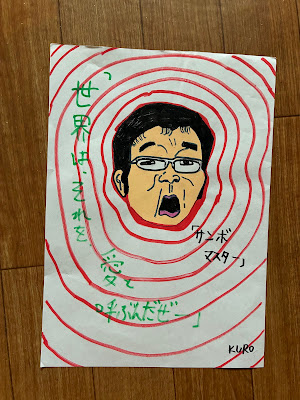 「世界は、それを、
愛と
呼ぶんだぜー」
「サンボ
マスター」
KURO